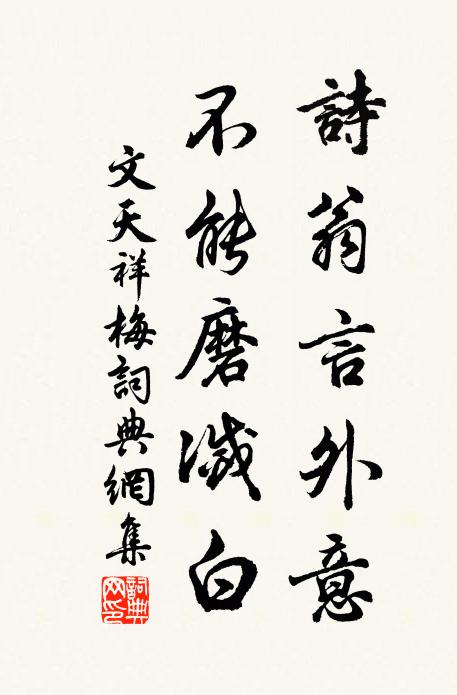 詩翁言外意
不能磨滅白
文天祥梅詞典網集
詞典網印